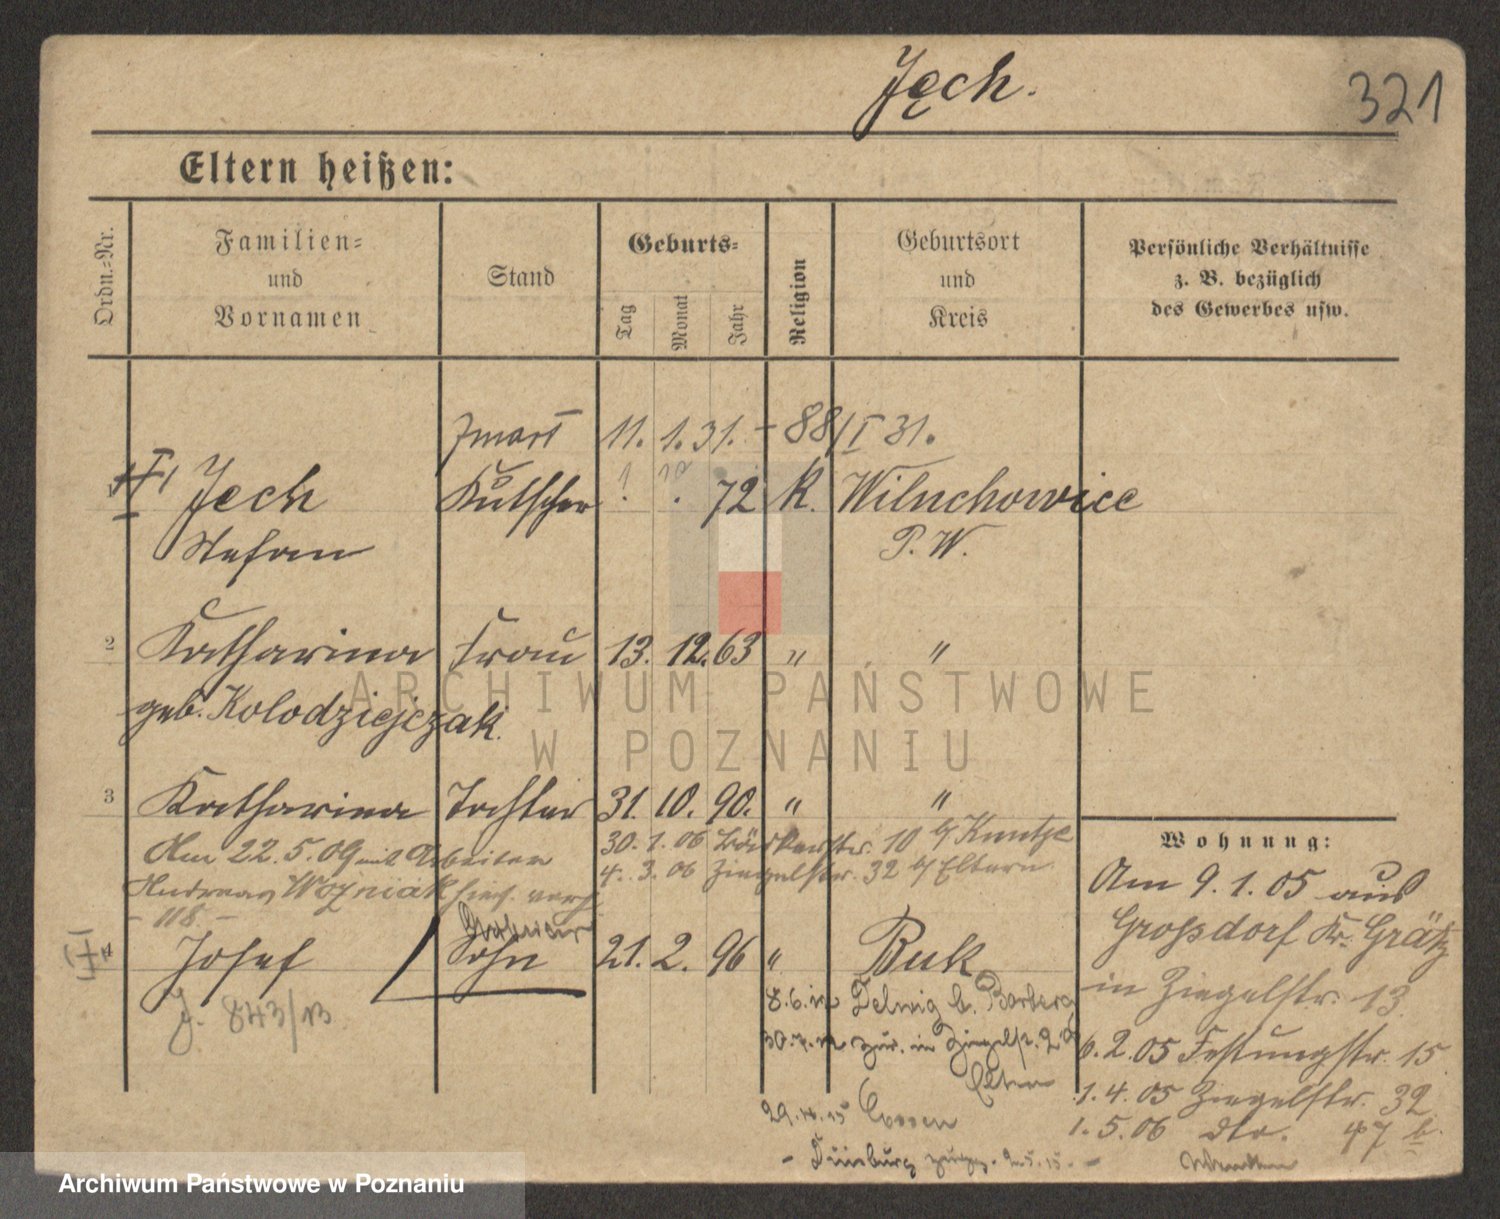 Jęch.
321
Eltern heißen:
Ordn.-Nr.
Familien-
und
Vornamen
Stand
Geburts-
Tag
Monat
Jahr
Religion
Geburtsort
und
Kreis
Persönliche Verhältnisse
z. B. bezüglich
des Gewerbes usw.
zmarł 11. 1. 31. - 88/I 31.
1 Jęch Kutscher 72 k. Wiluchowice
Stefan P. W.
2 Katharina Frau 13. 12. 63 " "
geb. Kolodziejczak.
3 Katharina Tochter 31. 10. 90. " "
30. 1. 06 10 b/ Kuntze
Am 22. 5. 09 mit Arbeiter
4. 3. 06 Ziegelstr. 32 b/ Eltern
Andreas Wozniak hies. verh.
- 118. -
4 Josef Sohn 21. 2. 96 " Buk
J. 843/13
8. 6. in Delwig b. Borberg
30. 7. zur. in Ziegelst. 29
Eltern
29. 15
- Duisburg 2.5.15. -
Wohnung:
Am 9. 1. 05 aus
Grossdorf Kr. Grätz
in Ziegelstr. 13.
6. 2. 05 Festungstr. 15
1. 4. 05 Ziegelstr. 32
1. 5. 06 dto. 47
ARCHIWUM PAŃSTWOWE
W POZNANIU
Archiwum Państwowe w Poznaniu